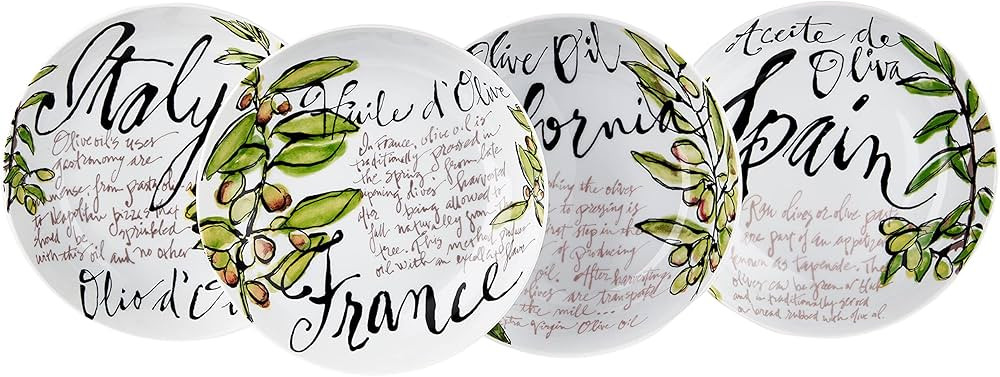 Italy
Olive oil's uses
gastronomy are
from pasta
to Neapolitan pizzas that
should be sprinkled
with this oil and no other
Olio d'O
Huile d'Olive
In France, olive oil is
traditionally pressed in
the spring. From late
ripening olives harvested
after being allowed to
fall naturally from the
tree. This method produces
oil with an excellent flavor
France
Olive Oil
fornia
the olives
to pressing is
step in the
of producing
oil. After harvesting
olives are transported
the mill...
extra virgin Olive oil
Aceite de
Oliva
Spain
Raw olives or olive paste
are part of an appetizer
known as tapenade. The
olives can be green or black
and is traditionally served
on bread rubbed with olive oil.